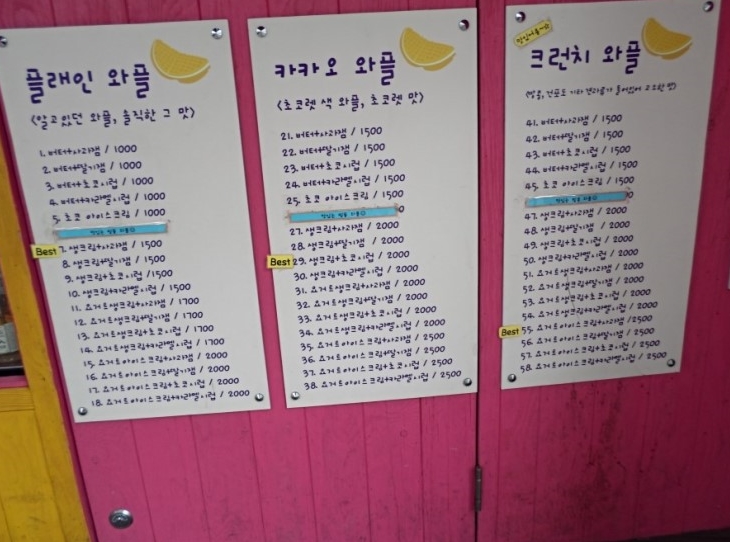 플래인 와플
<알고있던 와플, 솔직한 그 맛>
1. 버터+사과잼 / 1000
2. 버터+딸기잼 / 1000
3. 버터+초코시럽 / 1000
4. 버터+카라멜시럽 / 1000
5. 초코 아이스크림 / 1000
Best
7. 생크림+사과잼 / 1500
8. 생크림+딸기잼 / 1500
9. 생크림+초코시럽 / 1500
10. 생크림+카라멜시럽 / 1500
11. 요거트생크림+사과잼 / 1700
12. 요거트생크림+딸기잼 / 1700
13. 요거트생크림+초코시럽 / 1700
14. 요거트생크림+카라멜시럽 / 1700
15. 요거트아이스크림+사과잼 / 2000
16. 요거트아이스크림+딸기잼 / 2000
17. 요거트아이스크림+초코시럽 / 2000
18. 요거트아이스크림+카라멜시럽 / 2000
카카오 와플
<초코렛 색 와플, 초코렛 맛>
21. 버터+사과잼 / 1500
22. 버터+딸기잼 / 1500
23. 버터+초코시럽 / 1500
24. 버터+카라멜시럽 / 1500
25. 초코 아이스크림 / 1500
27. 생크림+사과잼 / 2000
28. 생크림+딸기잼 / 2000
Best
29. 생크림+초코시럽 / 2000
30. 생크림+카라멜시럽 / 2000
31. 요거트생크림+사과잼 / 2000
32. 요거트생크림+딸기잼 / 2000
33. 요거트생크림+초코시럽 / 2000
34. 요거트생크림+카라멜시럽 / 2000
35. 요거트아이스크림+사과잼 / 2500
36. 요거트아이스크림+딸기잼 / 2500
37. 요거트아이스크림+초코시럽 / 2500
38. 요거트아이스크림+카라멜시럽 / 2500
크런치 와플
41. 버터+사과잼 / 1500
42. 버터+딸기잼 / 1500
43. 버터+초코시럽 / 1500
44. 버터+카라멜시럽 / 1500
45. 초코 아이스크림 / 1500
47. 생크림+사과잼 / 2000
48. 생크림+딸기잼 / 2000
49. 생크림+초코시럽 / 2000
50. 생크림+카라멜시럽 / 2000
51. 요거트생크림+사과잼 / 2000
52. 요거트생크림+딸기잼 / 2000
53. 요거트생크림+초코시럽 / 2000
54. 요거트생크림+카라멜시럽 / 2000
Best
55. 요거트아이스크림+사과잼 / 2500
56. 요거트아이스크림+딸기잼 / 2500
57. 요거트아이스크림+초코시럽 / 2500
58. 요거트아이스크림+카라멜시럽 / 2500